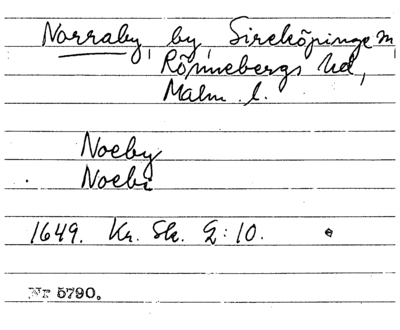 Norraby, by, Sireköpinge sn,
Rönnebergs hd,
Malm. l.
Noeby
Noebi
1649. Kr. Sk. E:10.
Nr 5790.